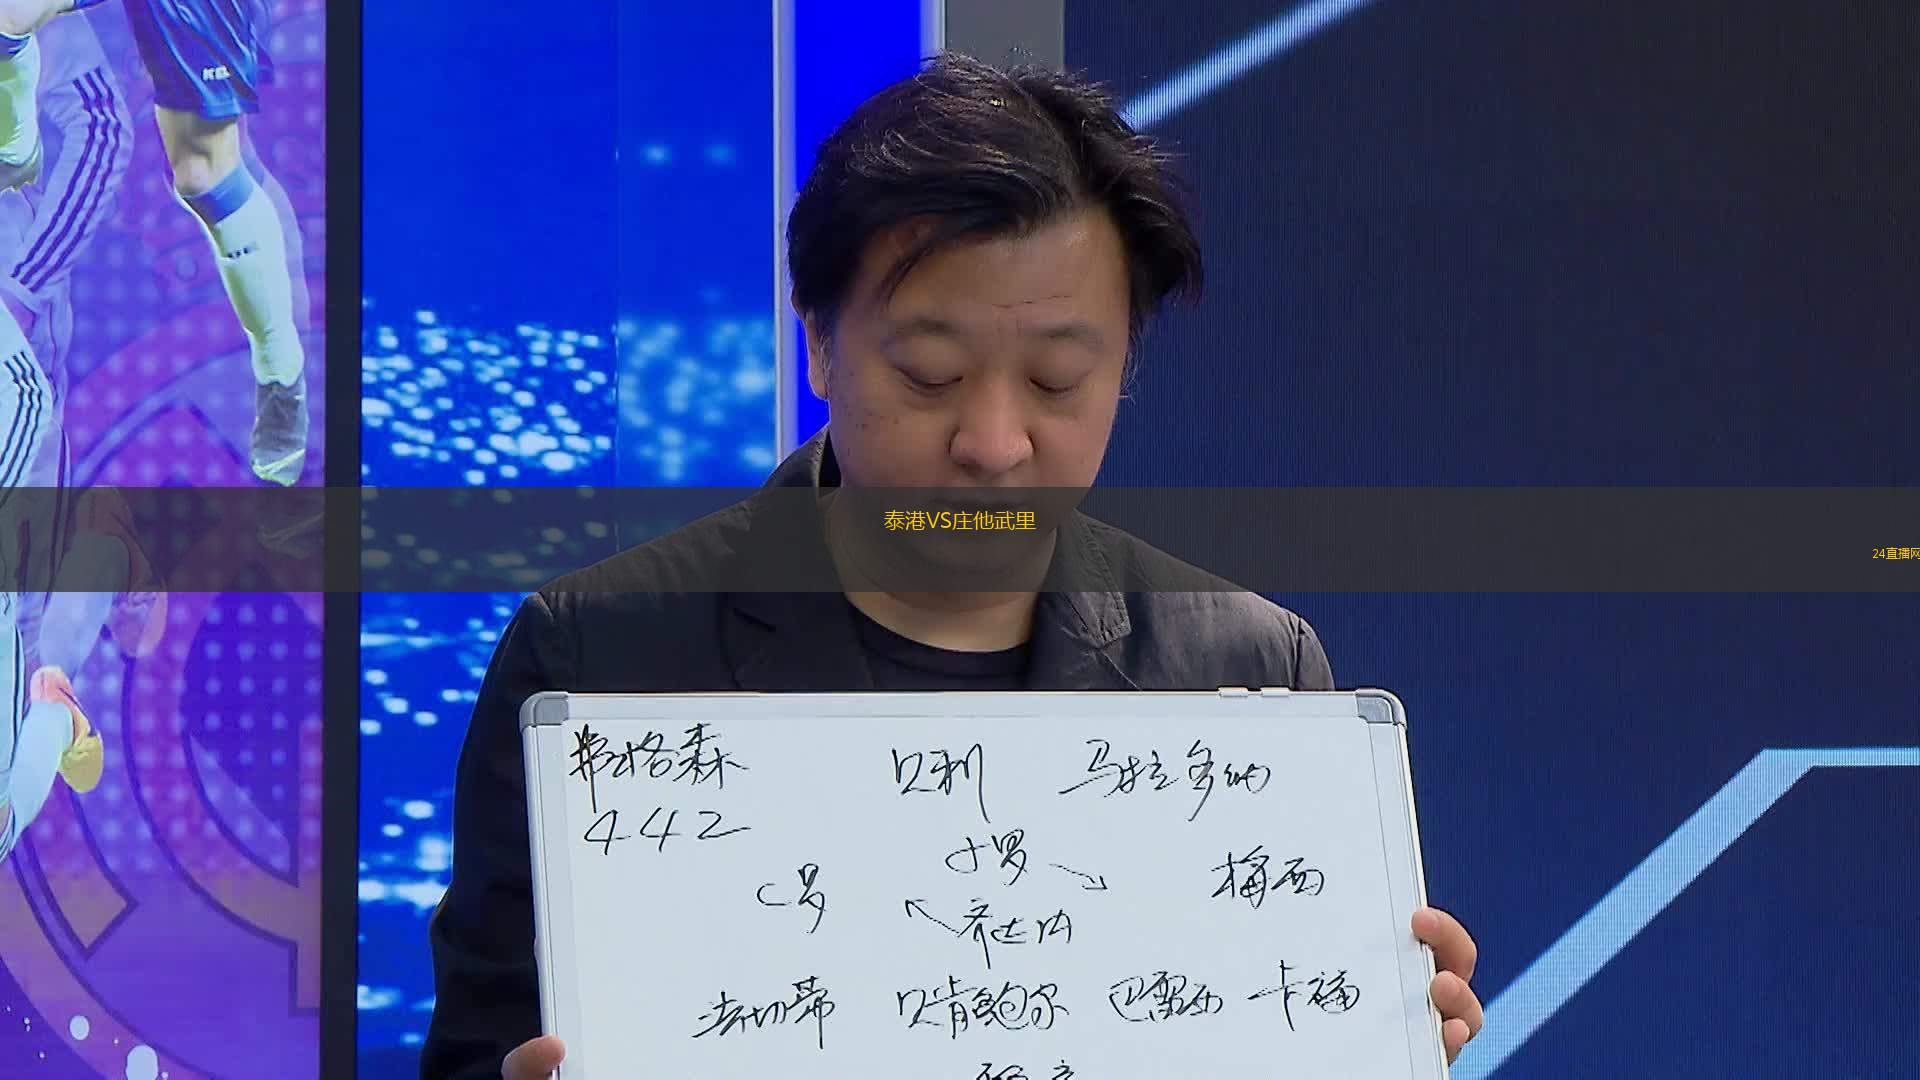 泰港VS庄他武里
24直播网
弗格森 贝利 马拉多纳
442
小罗
C罗 梅西
齐达内
法切蒂 贝肯鲍尔 巴雷西 卡福